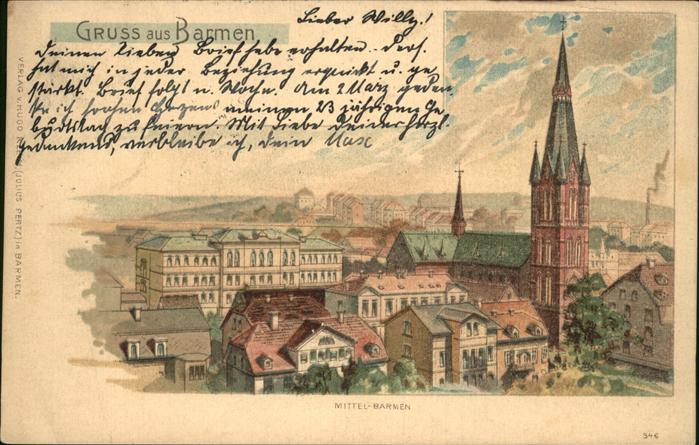 GRUSS aus Barmen
Lieber Willy!
Deinen lieben Brief habe erhalten. Ders.
hat mich in jeder Beziehung erquickt u. ge
stärkt. Brief folgt n. Woche. Am 2 März geden
ke ich frohen Herzens meinen 23 jährigen Ge
burtstag zu feiern. Mit Liebe Deiner herzl.
gedenkend, verbleibe ich, Dein Max
VERLAG v. HUGO (JULIUS PERTZ) in BARMEN.
MITTEL-BARMEN
346